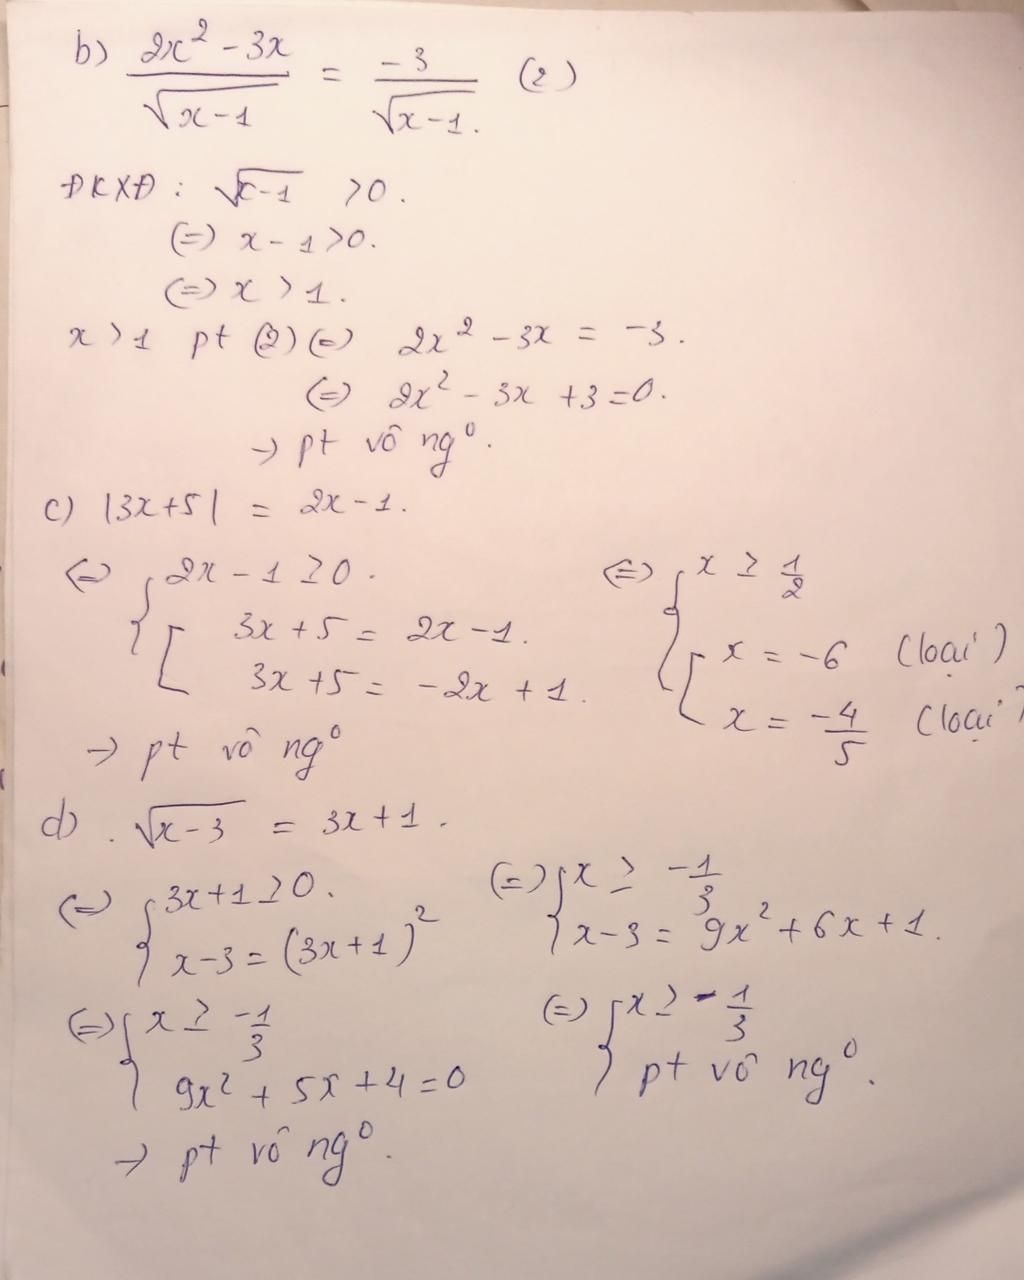 b) (2x² - 3x)/√(x-1) = -3/√(x-1). (2)
ĐKXĐ : √(x-1) >0.
(=) x - 1 >0.
(=) x > 1.
x > 1 pt (2) (=) 2x² - 3x = -3.
(=) 2x² - 3x +3 =0.
→ pt vô ng⁰.
c) |3x+5| = 2x - 1.
(=) { 2x - 1 ≥ 0. (=) { x ≥ 1/2
[ 3x + 5 = 2x - 1. [ x = -6 (loại)
3x +5 = -2x + 1. x = -4/5 (loại)
→ pt vô ng⁰
d) . √(x-3) = 3x + 1.
(=) { 3x+1 ≥ 0. (=) { x ≥ -1/3
x - 3 = (3x+1)² x - 3 = 9x² + 6x + 1.
(=) { x ≥ -1/3 (=) { x ≥ -1/3
9x² + 5x + 4 = 0 pt vô ng⁰.
→ pt vô ng⁰.